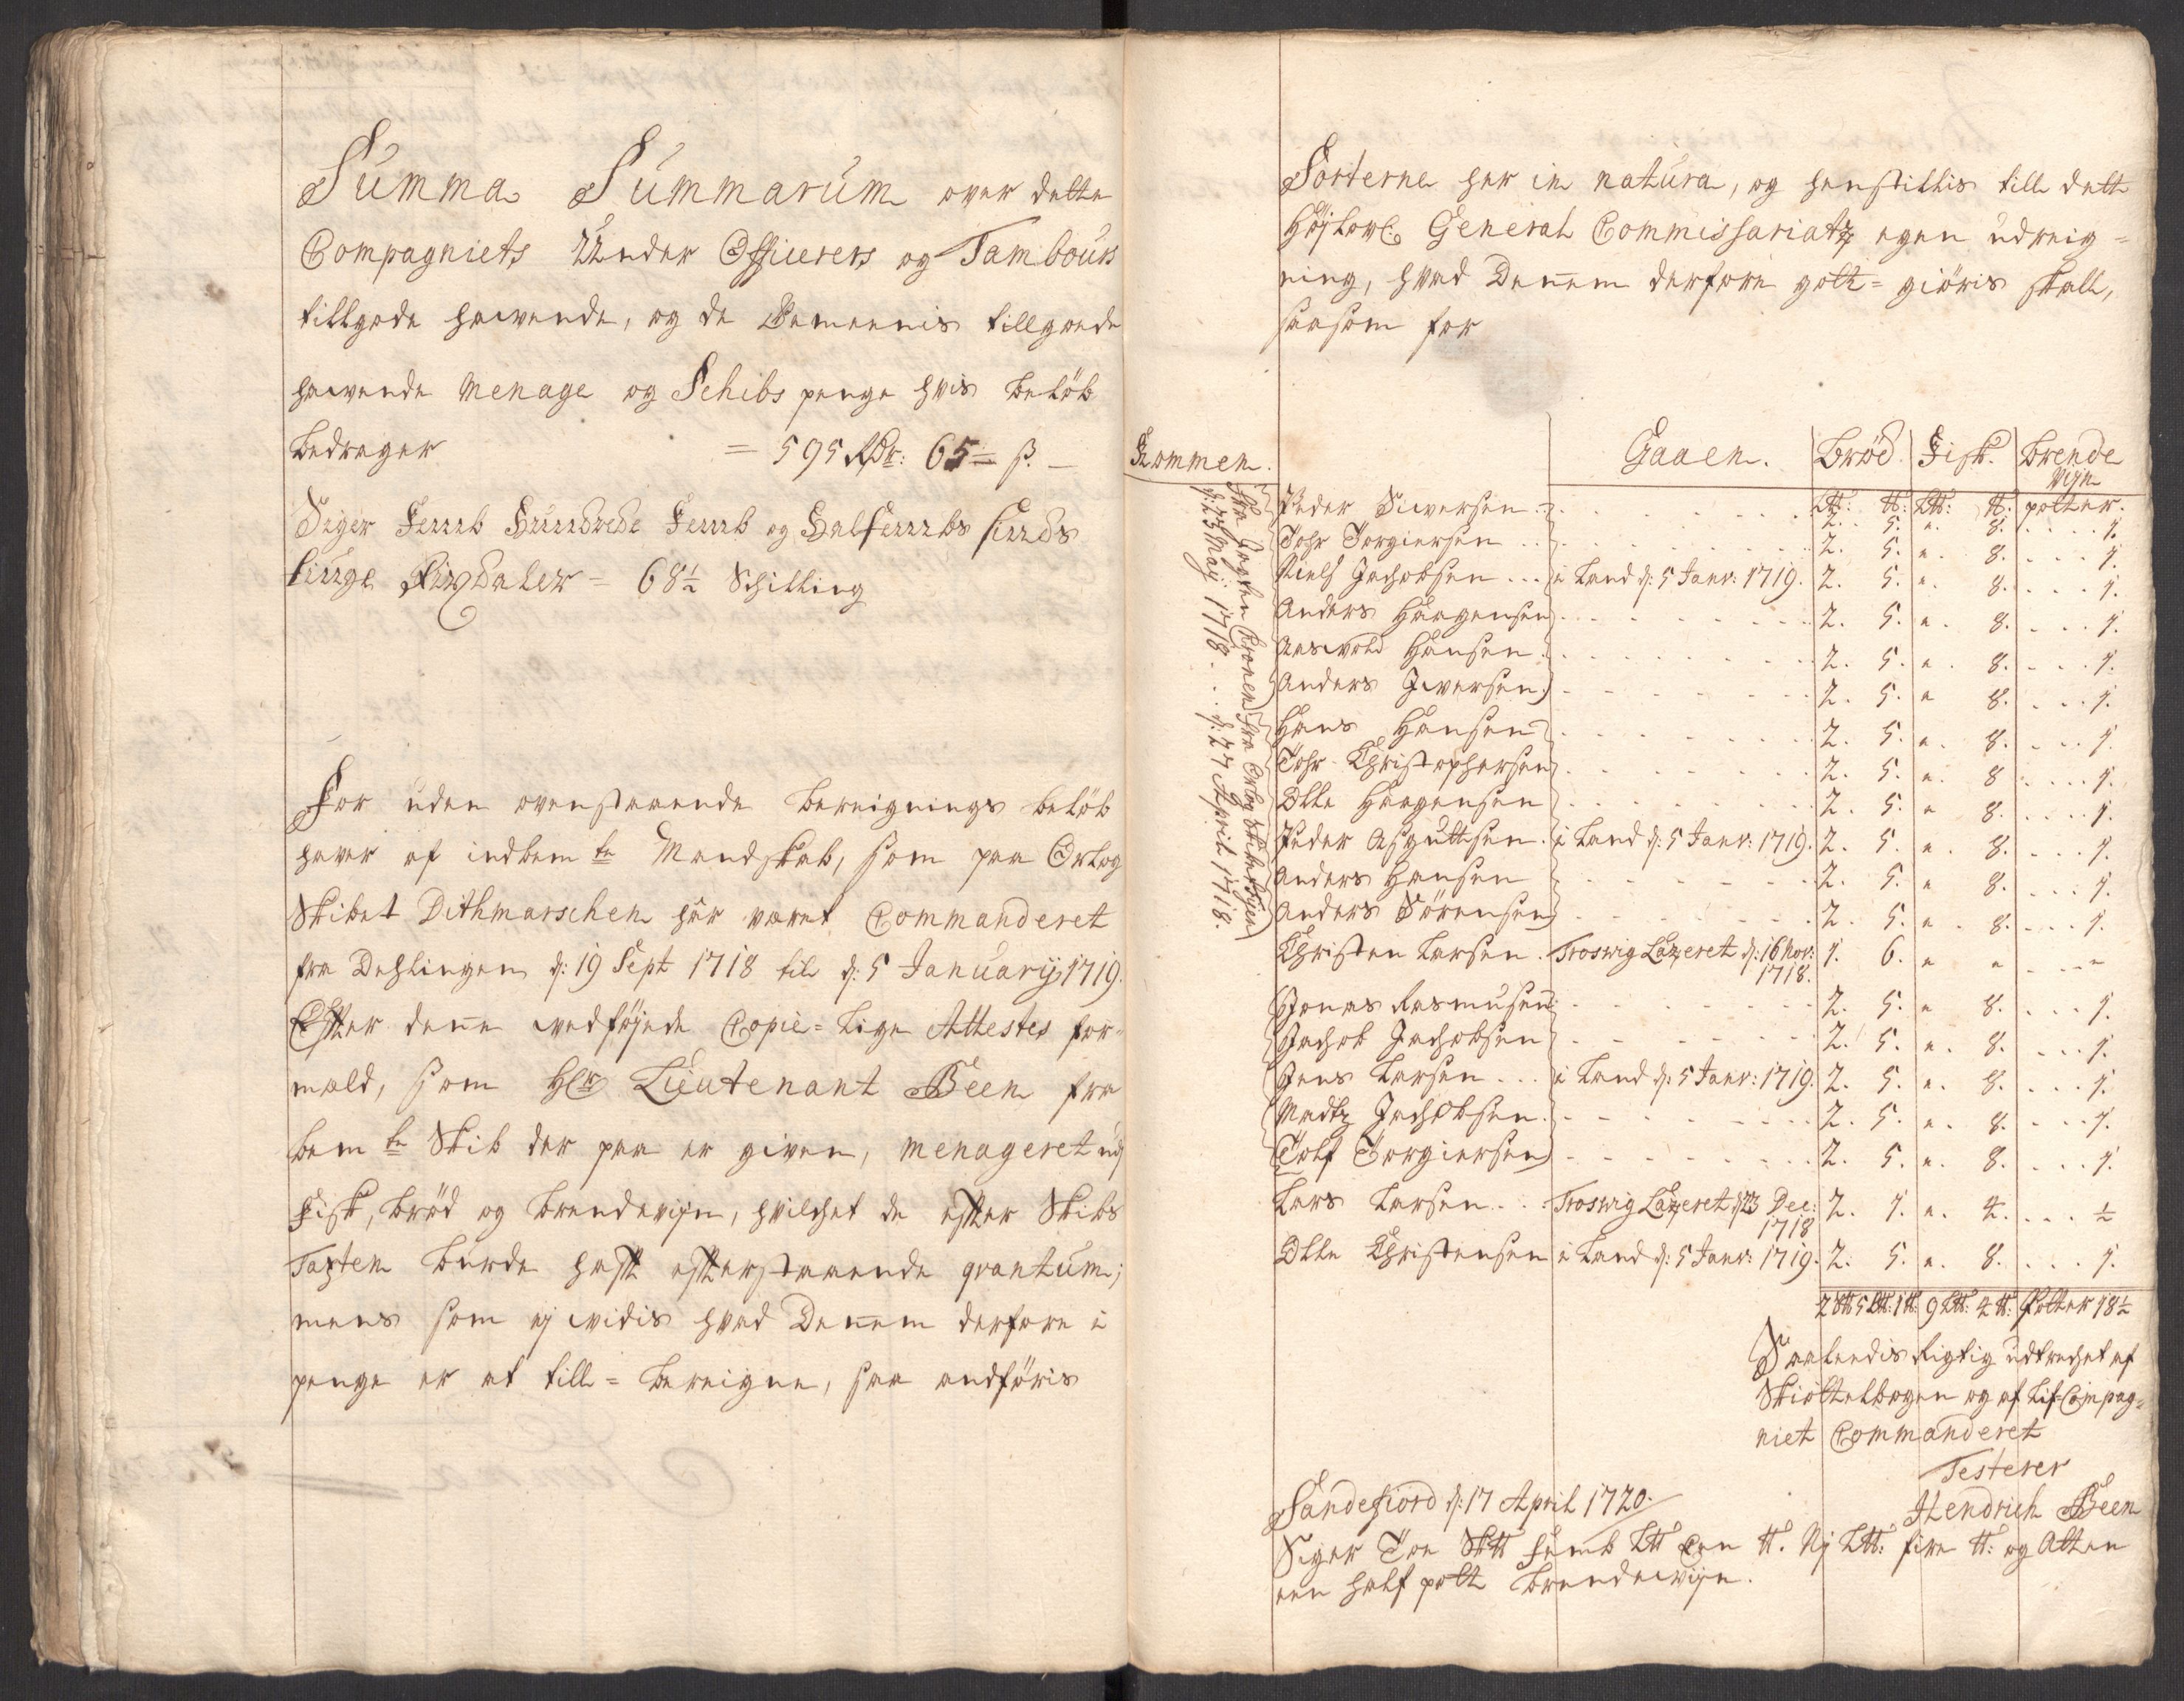 Summa Summarum over dette
Compagniets Under Officerers og Tambours
tillgode hawende, og de Gemeenis tillgoede
hawende Menage og Schibs penge hvis beløb
bedrager = 595 Rdr: 65 ½ s.
Siger Femb Hundrede Femb og Halfembs sinds
tiuge Rixdaler = 68½ Schilling
For uden ovenstaaende bereignings beløb
haver af indbem.te Mandskab, som paa Orlog
Skibet Dithmarschen hår været Commanderet
fra Dehlingen d: 19 Sept 1718 til d: 5 Januarij 1719.
Efter denne wedføjede Copie = Lige Attestes for-
mæld, som Hr Lieutenant Been fra
bem.te Skib der paa er given, menageret udj
Fisk, brød og brendevijn, hvilchet de efter Skibs
Taxten burde hafft efterstaaende qvantum;
mens som ej widis hvad Dennem derfore i
penge er at till = bereigne, saa andføris
Sorterne her in natura, og henstillis till dett
Højlovl. General Commissariatz egen udreig=
ning, hvad Dennem derfore gott = giøris skall,
saasom for
Kommen. Gaaen. Brød. Fisk. Brende
Vijn
L℔: ℔: L℔: ℔: potter.
Fra Jagten Cronen d: 23 Maij 1718.
Fra Orlog Skibet d: 27 April 1718.
Peder Siwersen 2. 5. " 8. 1.
Tohr Torgiersen 2. 5. " 8. 1.
Niels Jachobsen i Land d: 5 Janr: 1719. 2. 5. " 8. 1.
Anders Haagensen 2. 5. " 8. 1.
Aaswold Hansen 2. 5. " 8. 1.
Anders Iwersen 2. 5. " 8. 1.
Hans Hansen 2. 5. " 8. 1.
Tohr Christophersen 2. 5. " 8. 1.
Olle Haagensen 2. 5. " 8. 1.
Peder Asguttsen i Land d: 5 Janr: 1719. 2. 5. " 8. 1.
Anders Hansen 2. 5. " 8. 1.
Anders Sörensen 2. 5. " 8. 1.
Christen Larsen Troswig Lazeret d: 16 Nov: 1718. 1. 6. " " "
Jonas Rasmusen 2. 5. " 8. 1.
Jachob Jachobsen 2. 5. " 8. 1.
Jens Larsen i Land d: 5 Janr: 1719. 2. 5. " 8. 1.
Madtz Jachobsen 2. 5. " 8. 1.
Tolf Torgiersen 2. 5. " 8. 1.
Lars Larsen Troswig Lazeret d: 23 Dec: 1718 2. 1. " 4. ½
Olle Christensen i Land d: 5 Janr: 1719. 2. 5. " 8. 1.
2 S℔ 5 L℔: 1 ℔: 9 L℔: 4 ℔: Potter 18½
Saaleedis Rigtig udtrechet af
Skiøttelbogen og af Lif-Compag=
niet Commanderet
Testerer
Sandefiord d: 17 April 1720. Hendrich Been
Siger Toe S℔ Femb L℔ Een ℔. Nj L℔: fire ℔: og Atten
een half pott brendewijn.